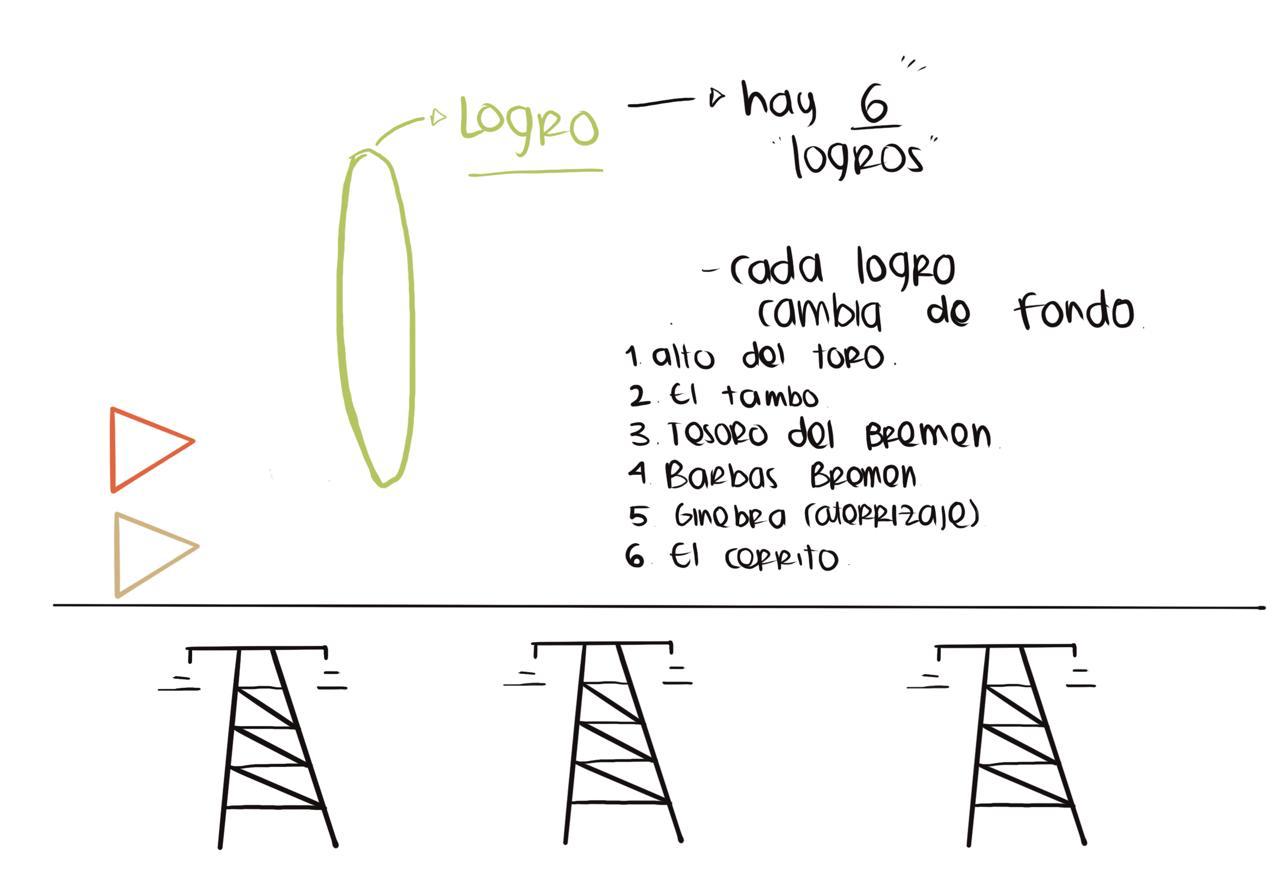 LOGRO
hay 6
"logros"
- cada logro
cambia de fondo
1. alto del toro.
2. El tambo
3. Tesoro del Bremen
4 Barbas Bremen
5 Ginebra (aterrizaje)
6. El cerrito